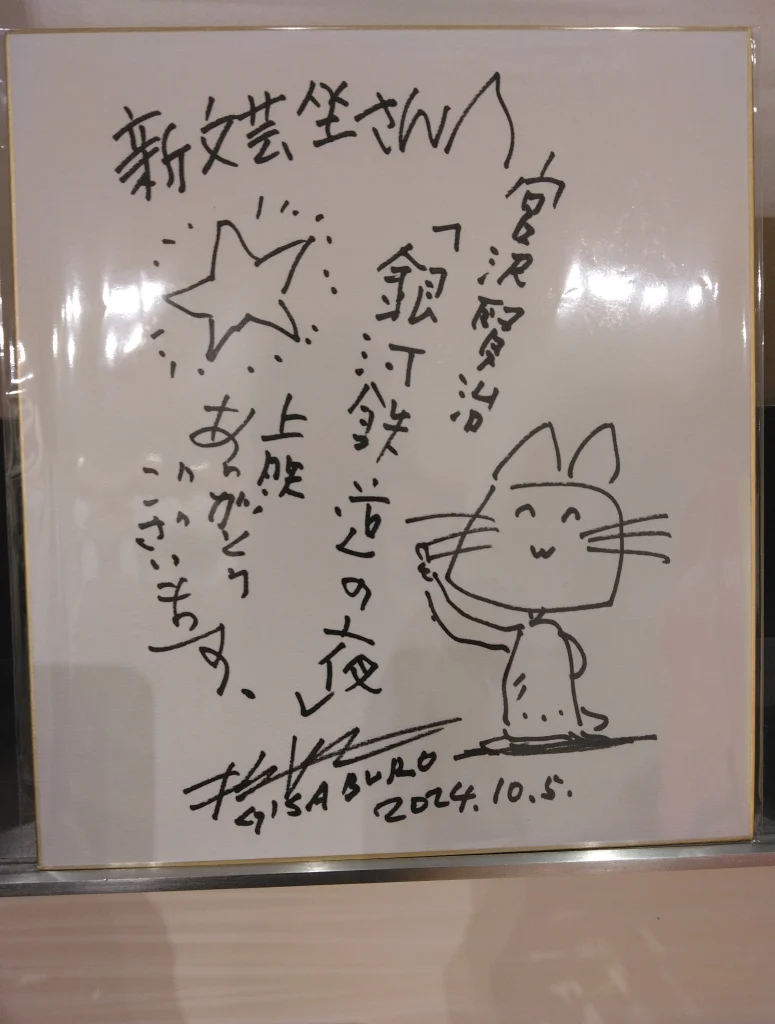 新文芸坐さんへ
宮沢賢治
「銀河鉄道の夜」
上映
ありがとう
ございます。
GISABURO
2024.10.5.